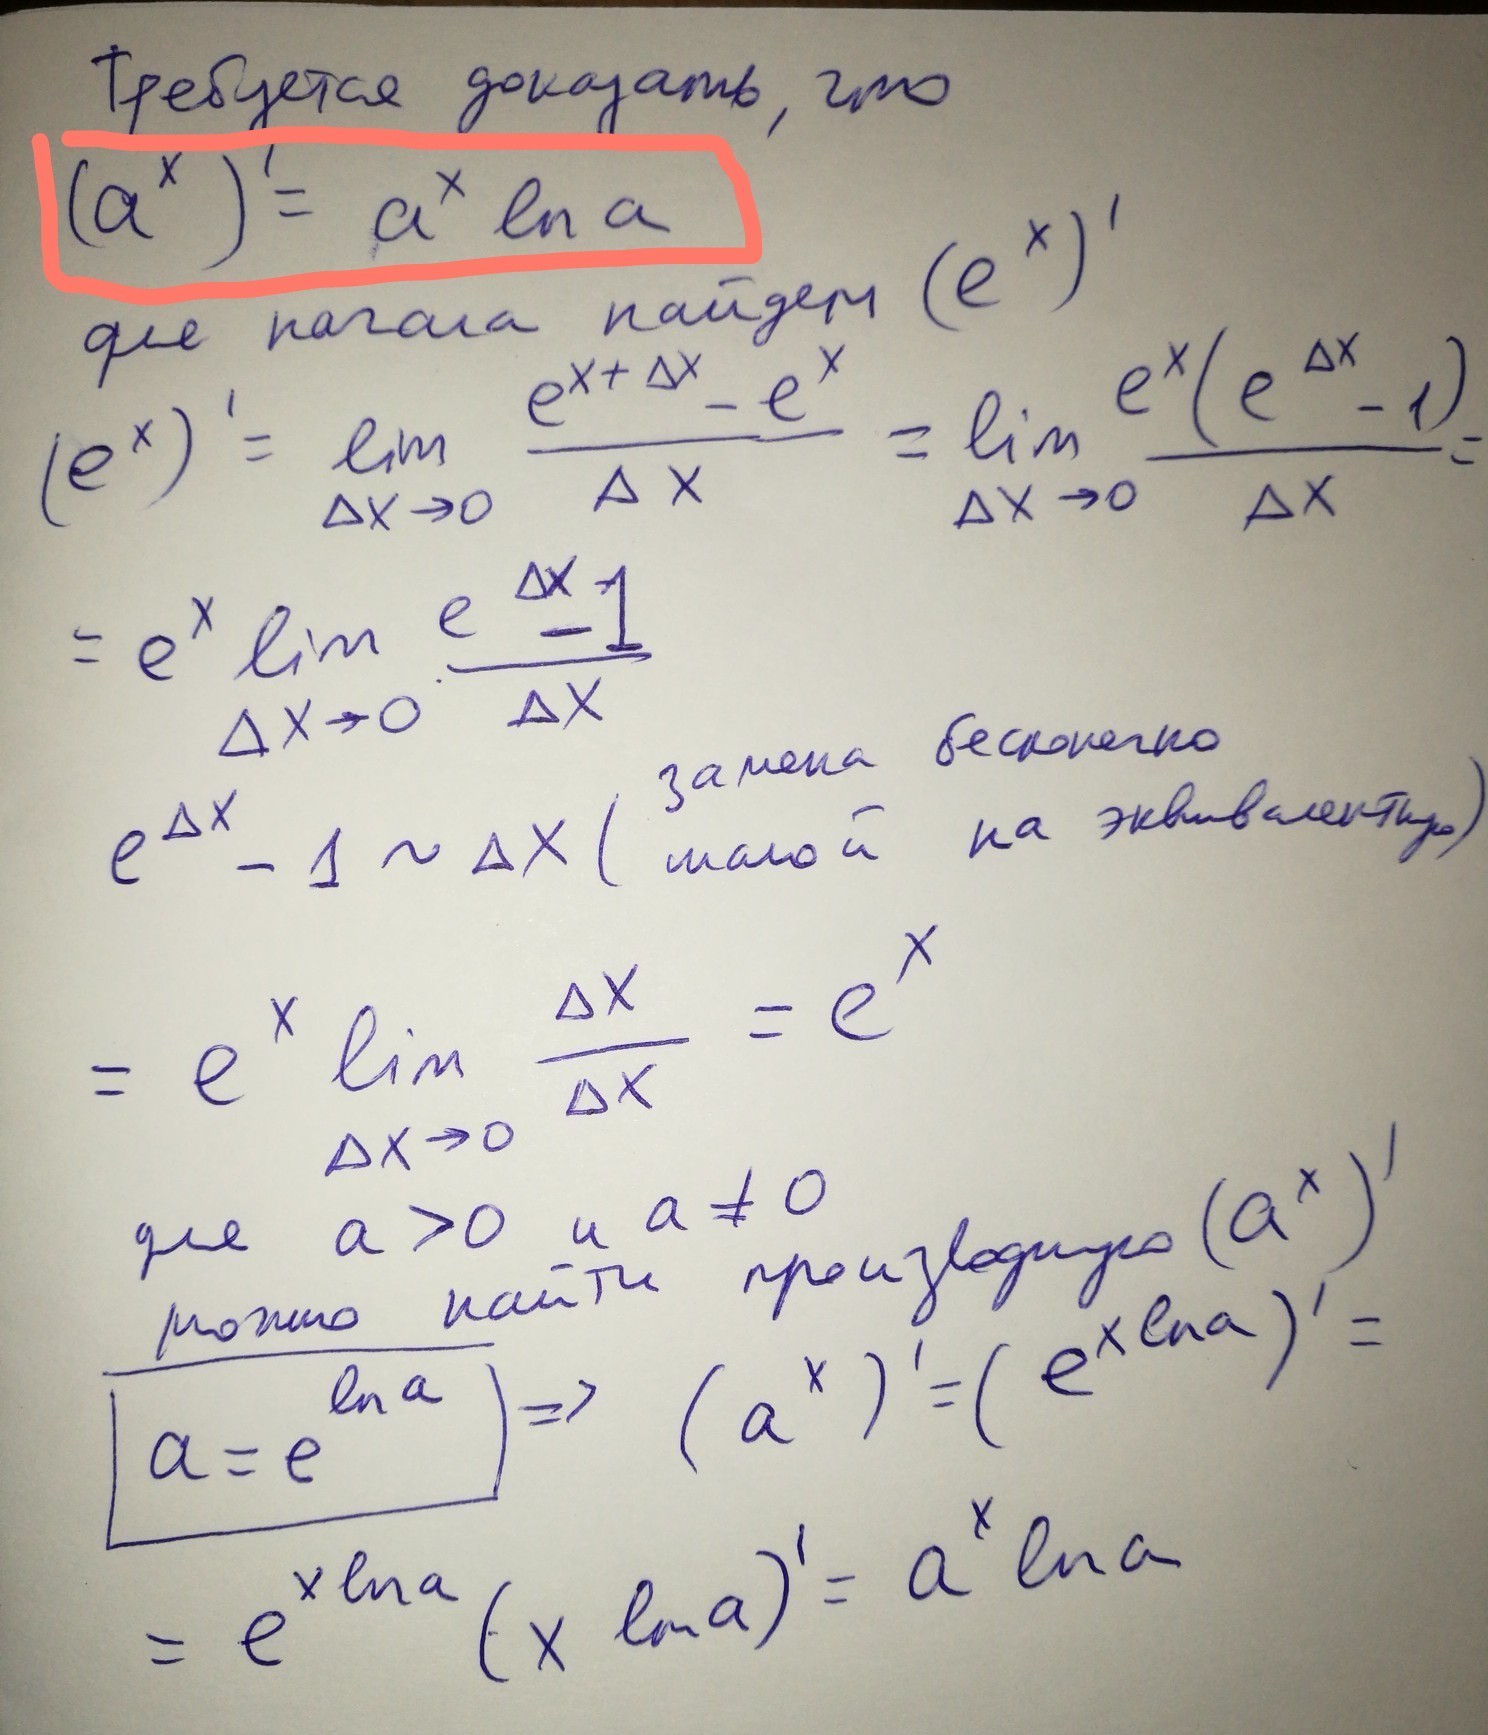 Требуется доказать, что
(a^x)' = a^x ln a
для начала найдем (e^x)'
(e^x)' = lim Δx→0 (e^(x+Δx) - e^x)/Δx = lim Δx→0 e^x(e^Δx - 1)/Δx =
= e^x lim Δx→0 (e^Δx - 1)/Δx
e^Δx - 1 ~ Δx (замена бесконечно
малой на эквивалентную)
= e^x lim Δx→0 Δx/Δx = e^x
для a > 0 и a ≠ 0
можно найти производную (a^x)'
a = e^(ln a) => (a^x)' = (e^(x ln a))' =
= e^(x ln a) (x ln a)' = a^x ln a